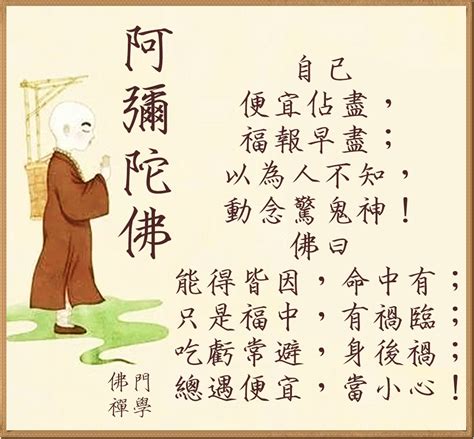 阿彌陀佛
自己
便宜佔盡，
福報早盡；
以為人不知，
動念驚鬼神！
佛曰
能得皆因，命中有；
只是福中，有禍臨；
吃虧常避，身後禍；
總遇便宜，當小心！
佛門
禪學